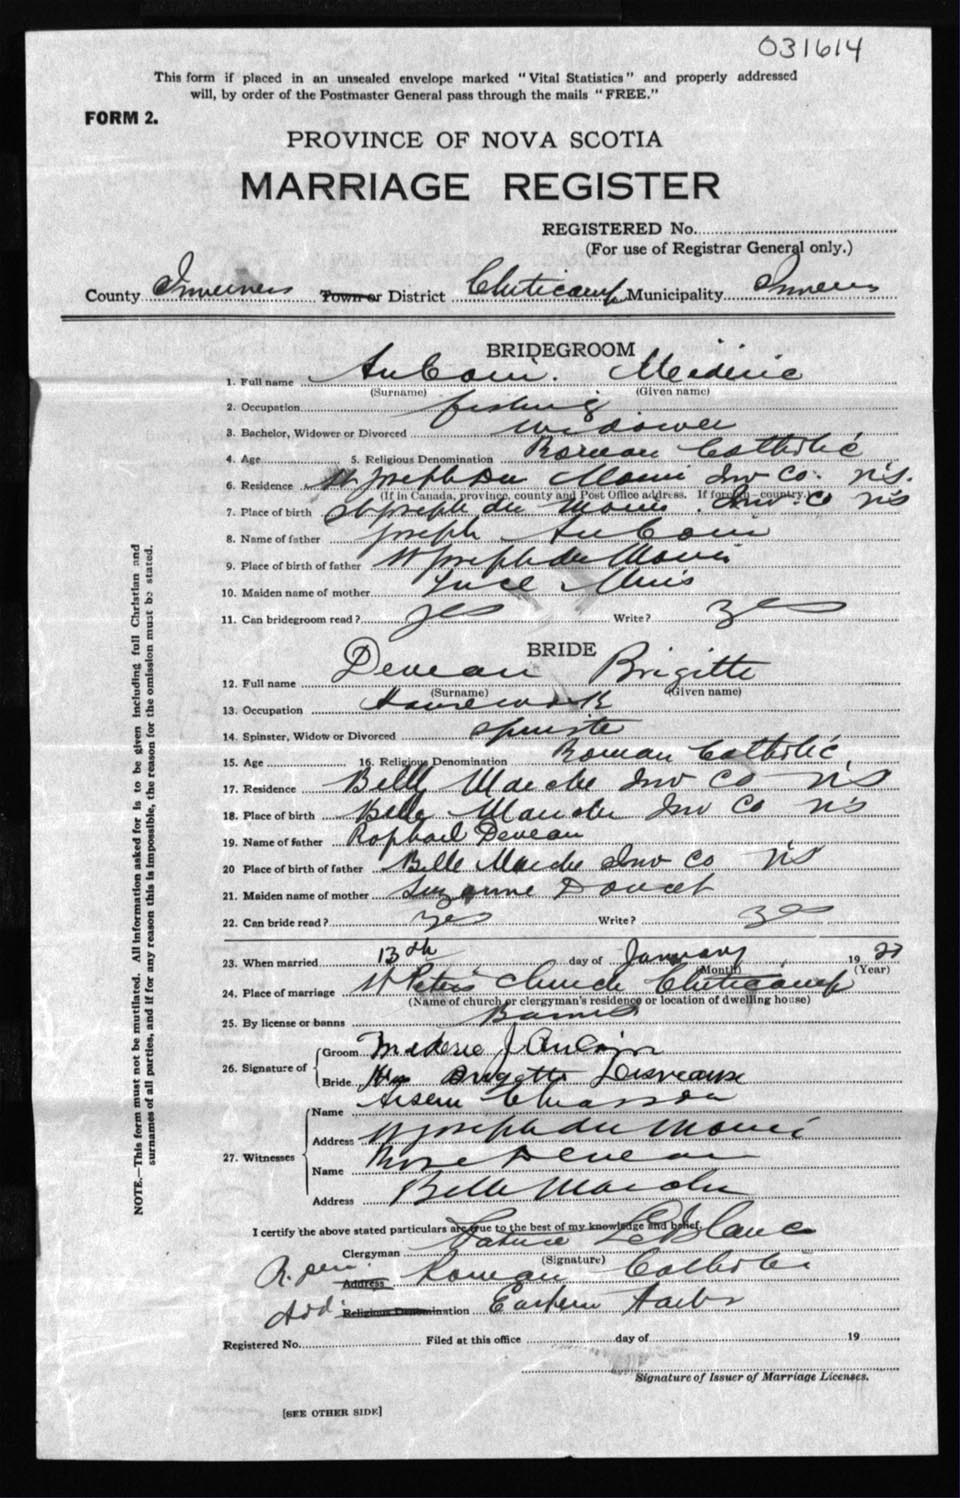 031614
This form if placed in an unsealed envelope marked "Vital Statistics" and properly addressed
will, by order of the Postmaster General pass through the mails "FREE."
FORM 2.
PROVINCE OF NOVA SCOTIA
MARRIAGE REGISTER
REGISTERED No.
(For use of Registrar General only.)
County Inverness Town or District Cheticamp Municipality Inverness
BRIDEGROOM
1. Full name AuCoin. Mederic
(Surname) (Given name)
2. Occupation fishing
3. Bachelor, Widower or Divorced widower
4. Age 5. Religious Denomination Roman Catholic
6. Residence St Joseph du Moine Inv Co. N.S.
(If in Canada, province, county and Post Office address. If foreign—country.)
7. Place of birth St Joseph du Moine Inv. Co NS
8. Name of father Joseph AuCoin
9. Place of birth of father St Joseph du Moine
10. Maiden name of mother
11. Can bridegroom read? yes Write? yes
BRIDE
12. Full name Deveau Brigitte
(Surname) (Given name)
13. Occupation Housework
14. Spinster, Widow or Divorced spinster
15. Age 16. Religious Denomination Roman Catholic
17. Residence Belle Marche Inv Co NS
18. Place of birth Belle Marche Inv Co NS
19. Name of father Raphael Deveau
20 Place of birth of father Belle Marche Inv Co NS
21. Maiden name of mother Suzanne Doucet
22. Can bride read? yes Write? yes
23. When married 13th day of January 19
(Month) (Year)
24. Place of marriage St Peters Church Cheticamp
(Name of church or clergyman's residence or location of dwelling house)
25. By license or banns Banns
26. Signature of
Groom Mederic J AuCoin
Bride Brigette Desveaux
27. Witnesses
Name Arsene Chiasson
Address St Joseph du Moine
Name Rose Deveau
Address Belle Marche
I certify the above stated particulars are true to the best of my knowledge and belief.
Clergyman Patrice LeBlanc
(Signature)
R. den. Address Roman Catholic
Add Religious Denomination Eastern Harbor
Registered No. Filed at this office day of 19
Signature of Issuer of Marriage Licenses.
[SEE OTHER SIDE]
NOTE.—This form must not be mutilated. All information asked for is to be given including full Christian and
surnames of all parties, and if for any reason this is impossible, the reason for the omission must be stated.